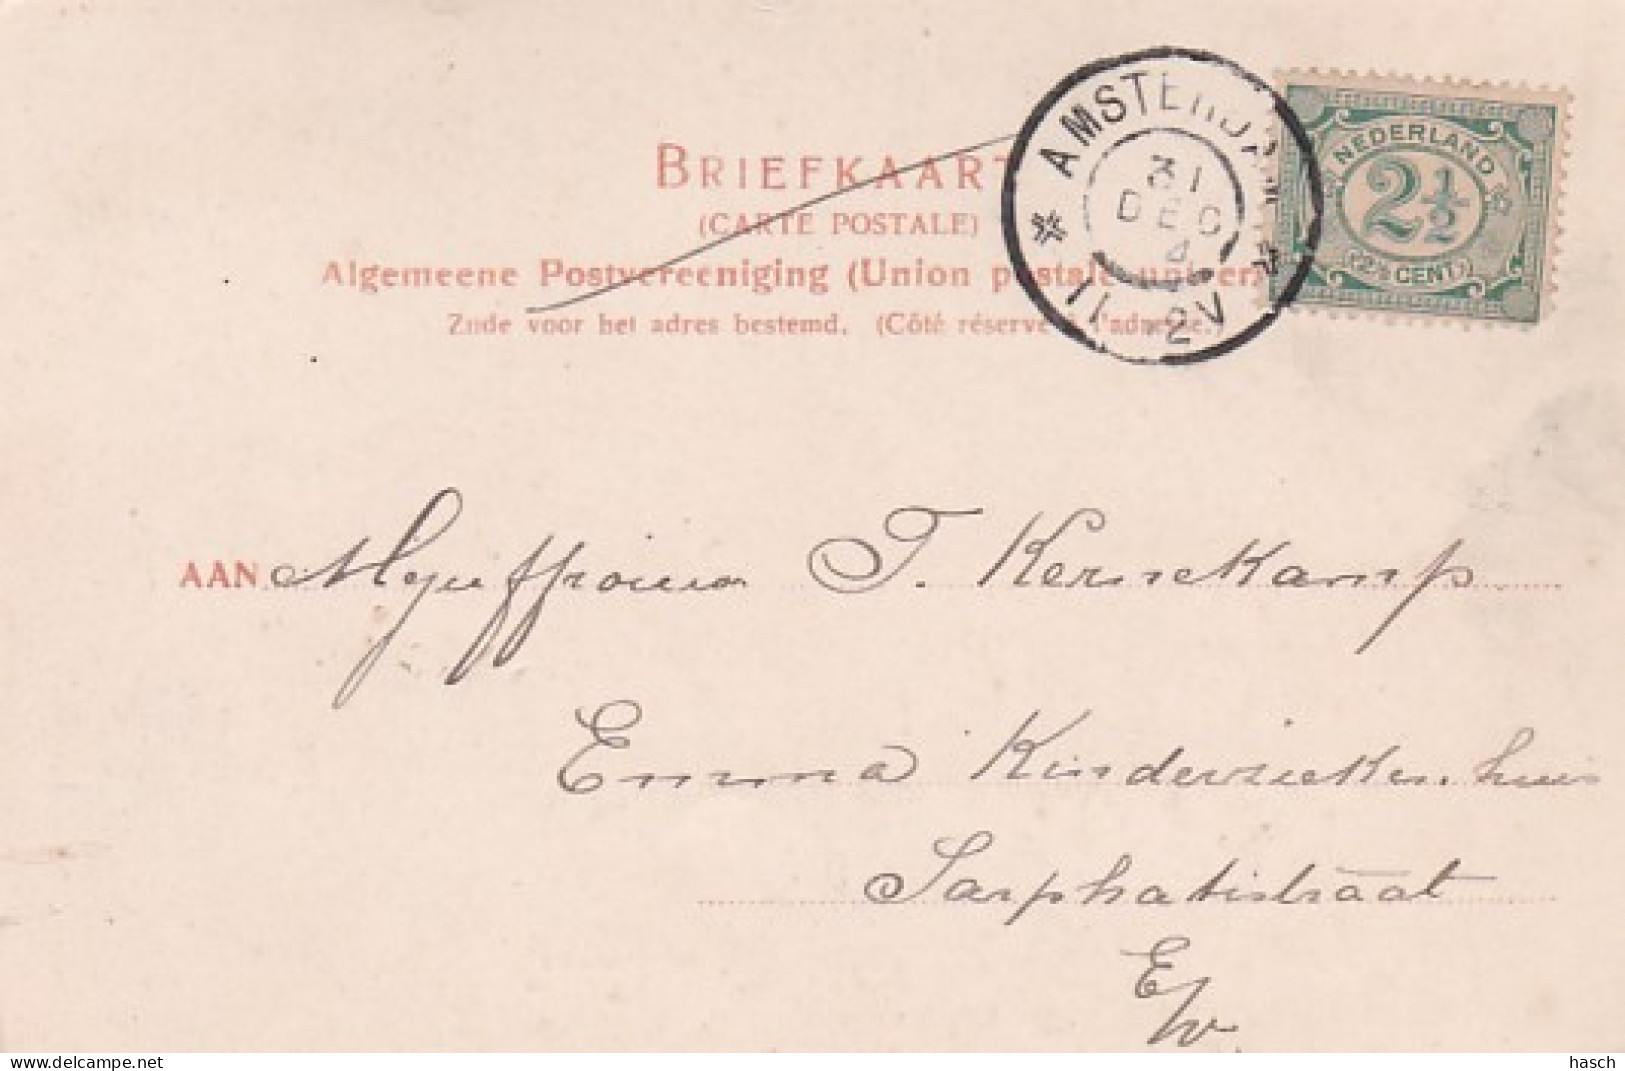 BRIEFKAART
(CARTE POSTALE)
Algemeene Postvereeniging (Union postale univer
Zijde voor het adres bestemd. (Côté réservé à l'adresse.)
AMSTERDAM
31
DEC
4
11-12V
NEDERLAND
2½
(2½ CENT)
AAN Mejuffrouw T. Kernekamp
Emma Kinderziekenhuis
Sarphatistraat
E/v
www.delcampe.net
hasch